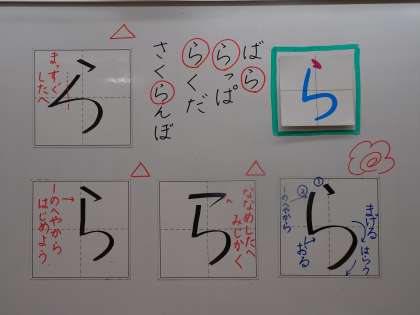 ばら
らっぱ
らくだ
さくらんぼ
ら
ら
まっすぐ
したへ
ら
1のへやから
はじめよう
ら
ななめしたへ
みじかく
ら
①
②
1のへやから
おる
まげる
はらう